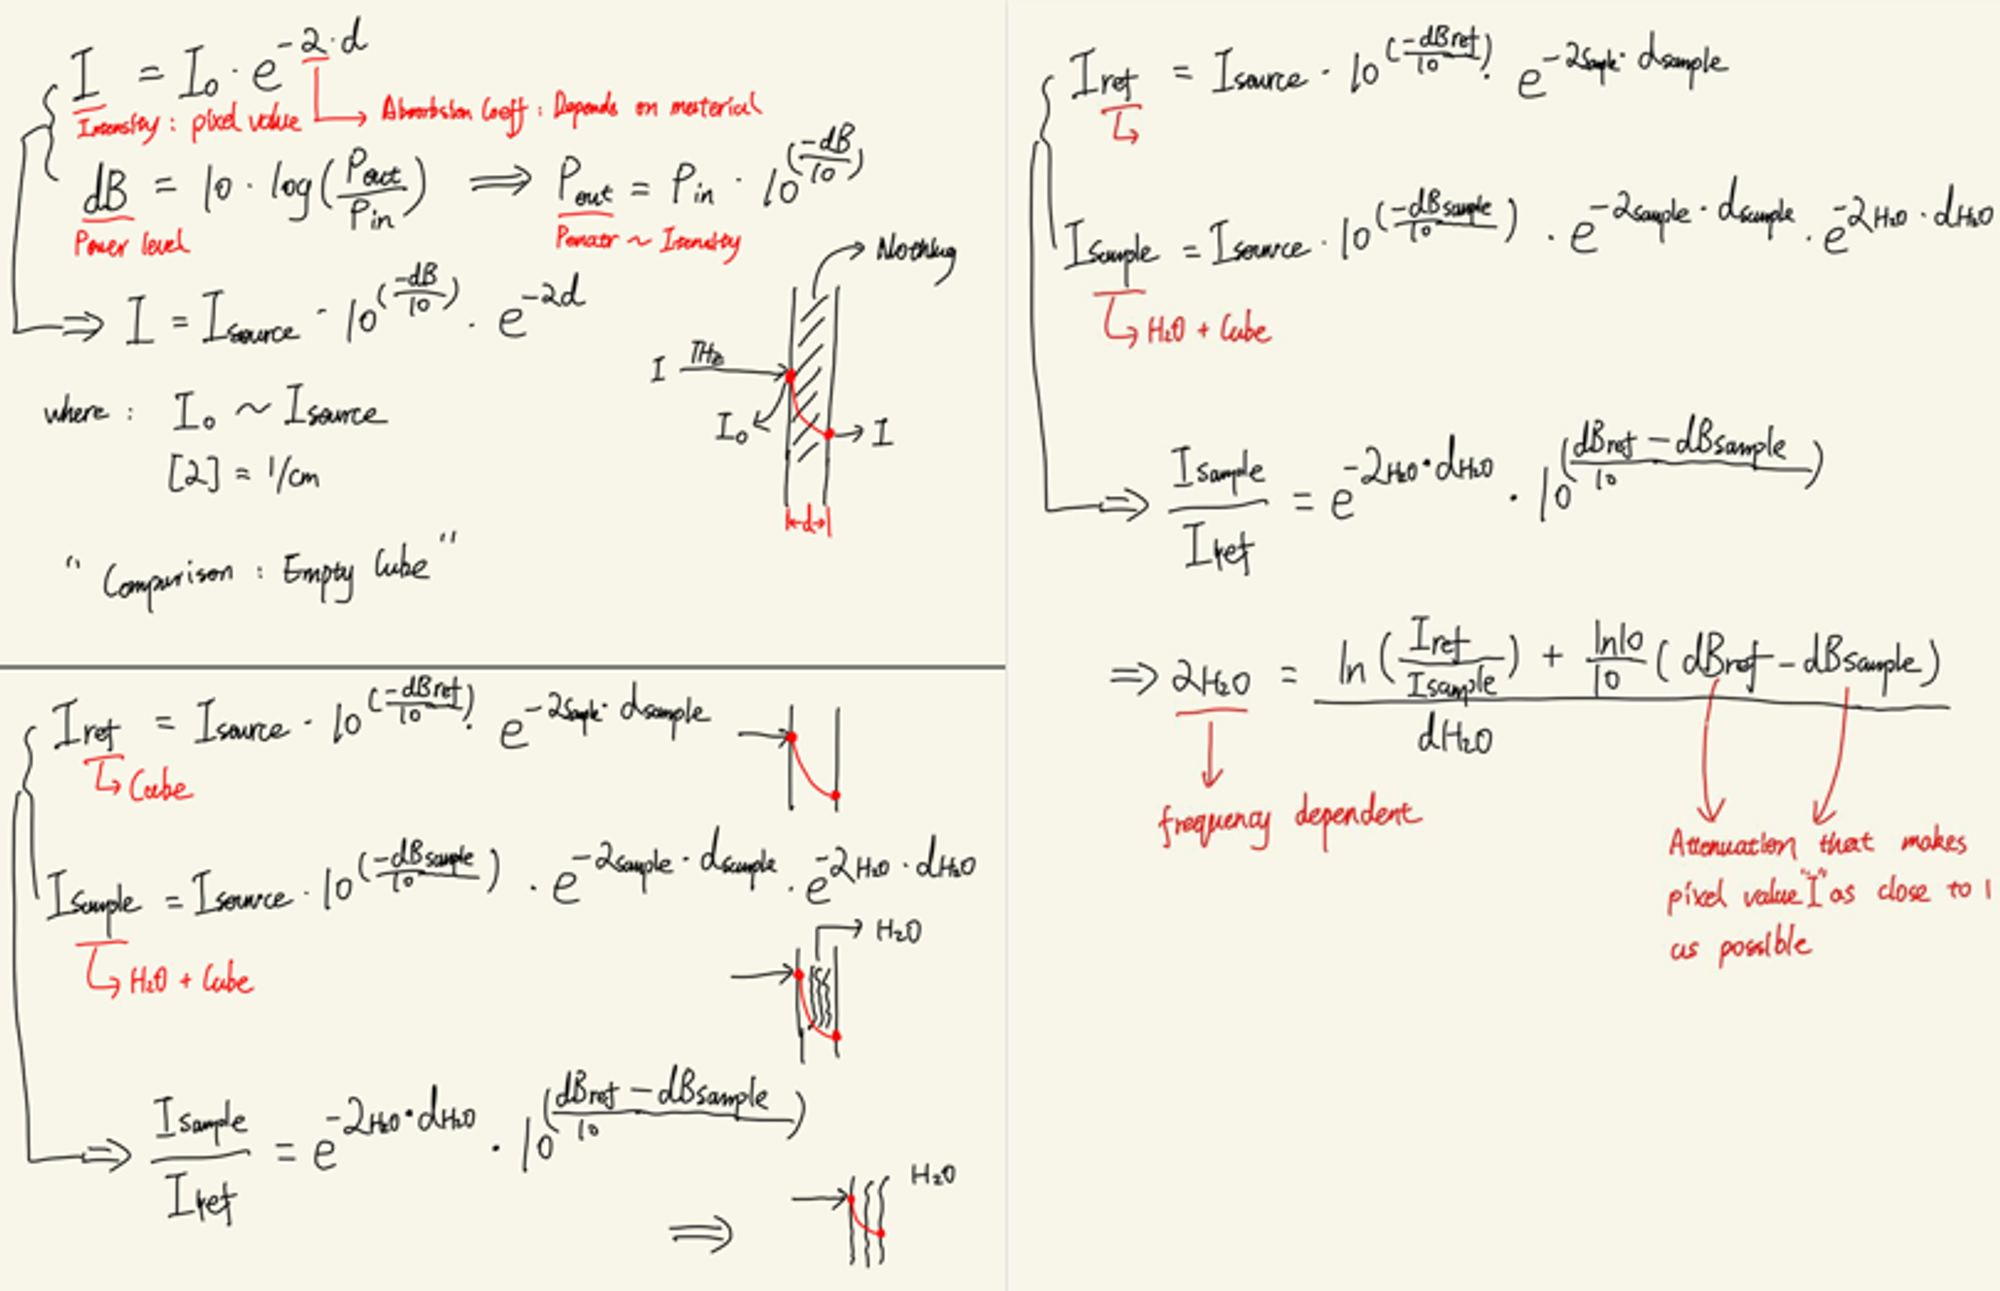 I = I₀ · e^(-2·d)
Intensity : pixel value → Absorbtion Coeff : Depends on material
dB = 10 · log(Pout/Pin) ⇒ Pout = Pin · 10^(-dB/10)
Power level
~ Intensity
Nothing
⇒ I = Isource · 10^(-dB/10) · e^(-2d)
I THz
I₀ I
where : I₀ ~ Isource
[2] = 1/cm
d
" Comparison : Empty Cube "
Iref = Isource · 10^(-dBref/10) · e^(-2sample · dsample)
↳ Cube
Isample = Isource · 10^(-dBsample/10) · e^(-2sample · dsample) · e^(-2H₂O · dH₂O)
↳ H₂O + Cube
H₂O
⇒ Isample/Iref = e^(-2H₂O · dH₂O) · 10^((dBref - dBsample)/10)
⇒ H₂O
Iref = Isource · 10^(-dBref/10) · e^(-2sample · dsample)
↳
Isample = Isource · 10^(-dBsample/10) · e^(-2sample · dsample) · e^(-2H₂O · dH₂O)
↳ H₂O + Cube
⇒ Isample/Iref = e^(-2H₂O · dH₂O) · 10^((dBref - dBsample)/10)
⇒ 2H₂O = (ln(Iref/Isample) + ln10/10 (dBref - dBsample)) / dH₂O
frequency dependent
Attenuation that makes
pixel value "I" as close to 1
as possible